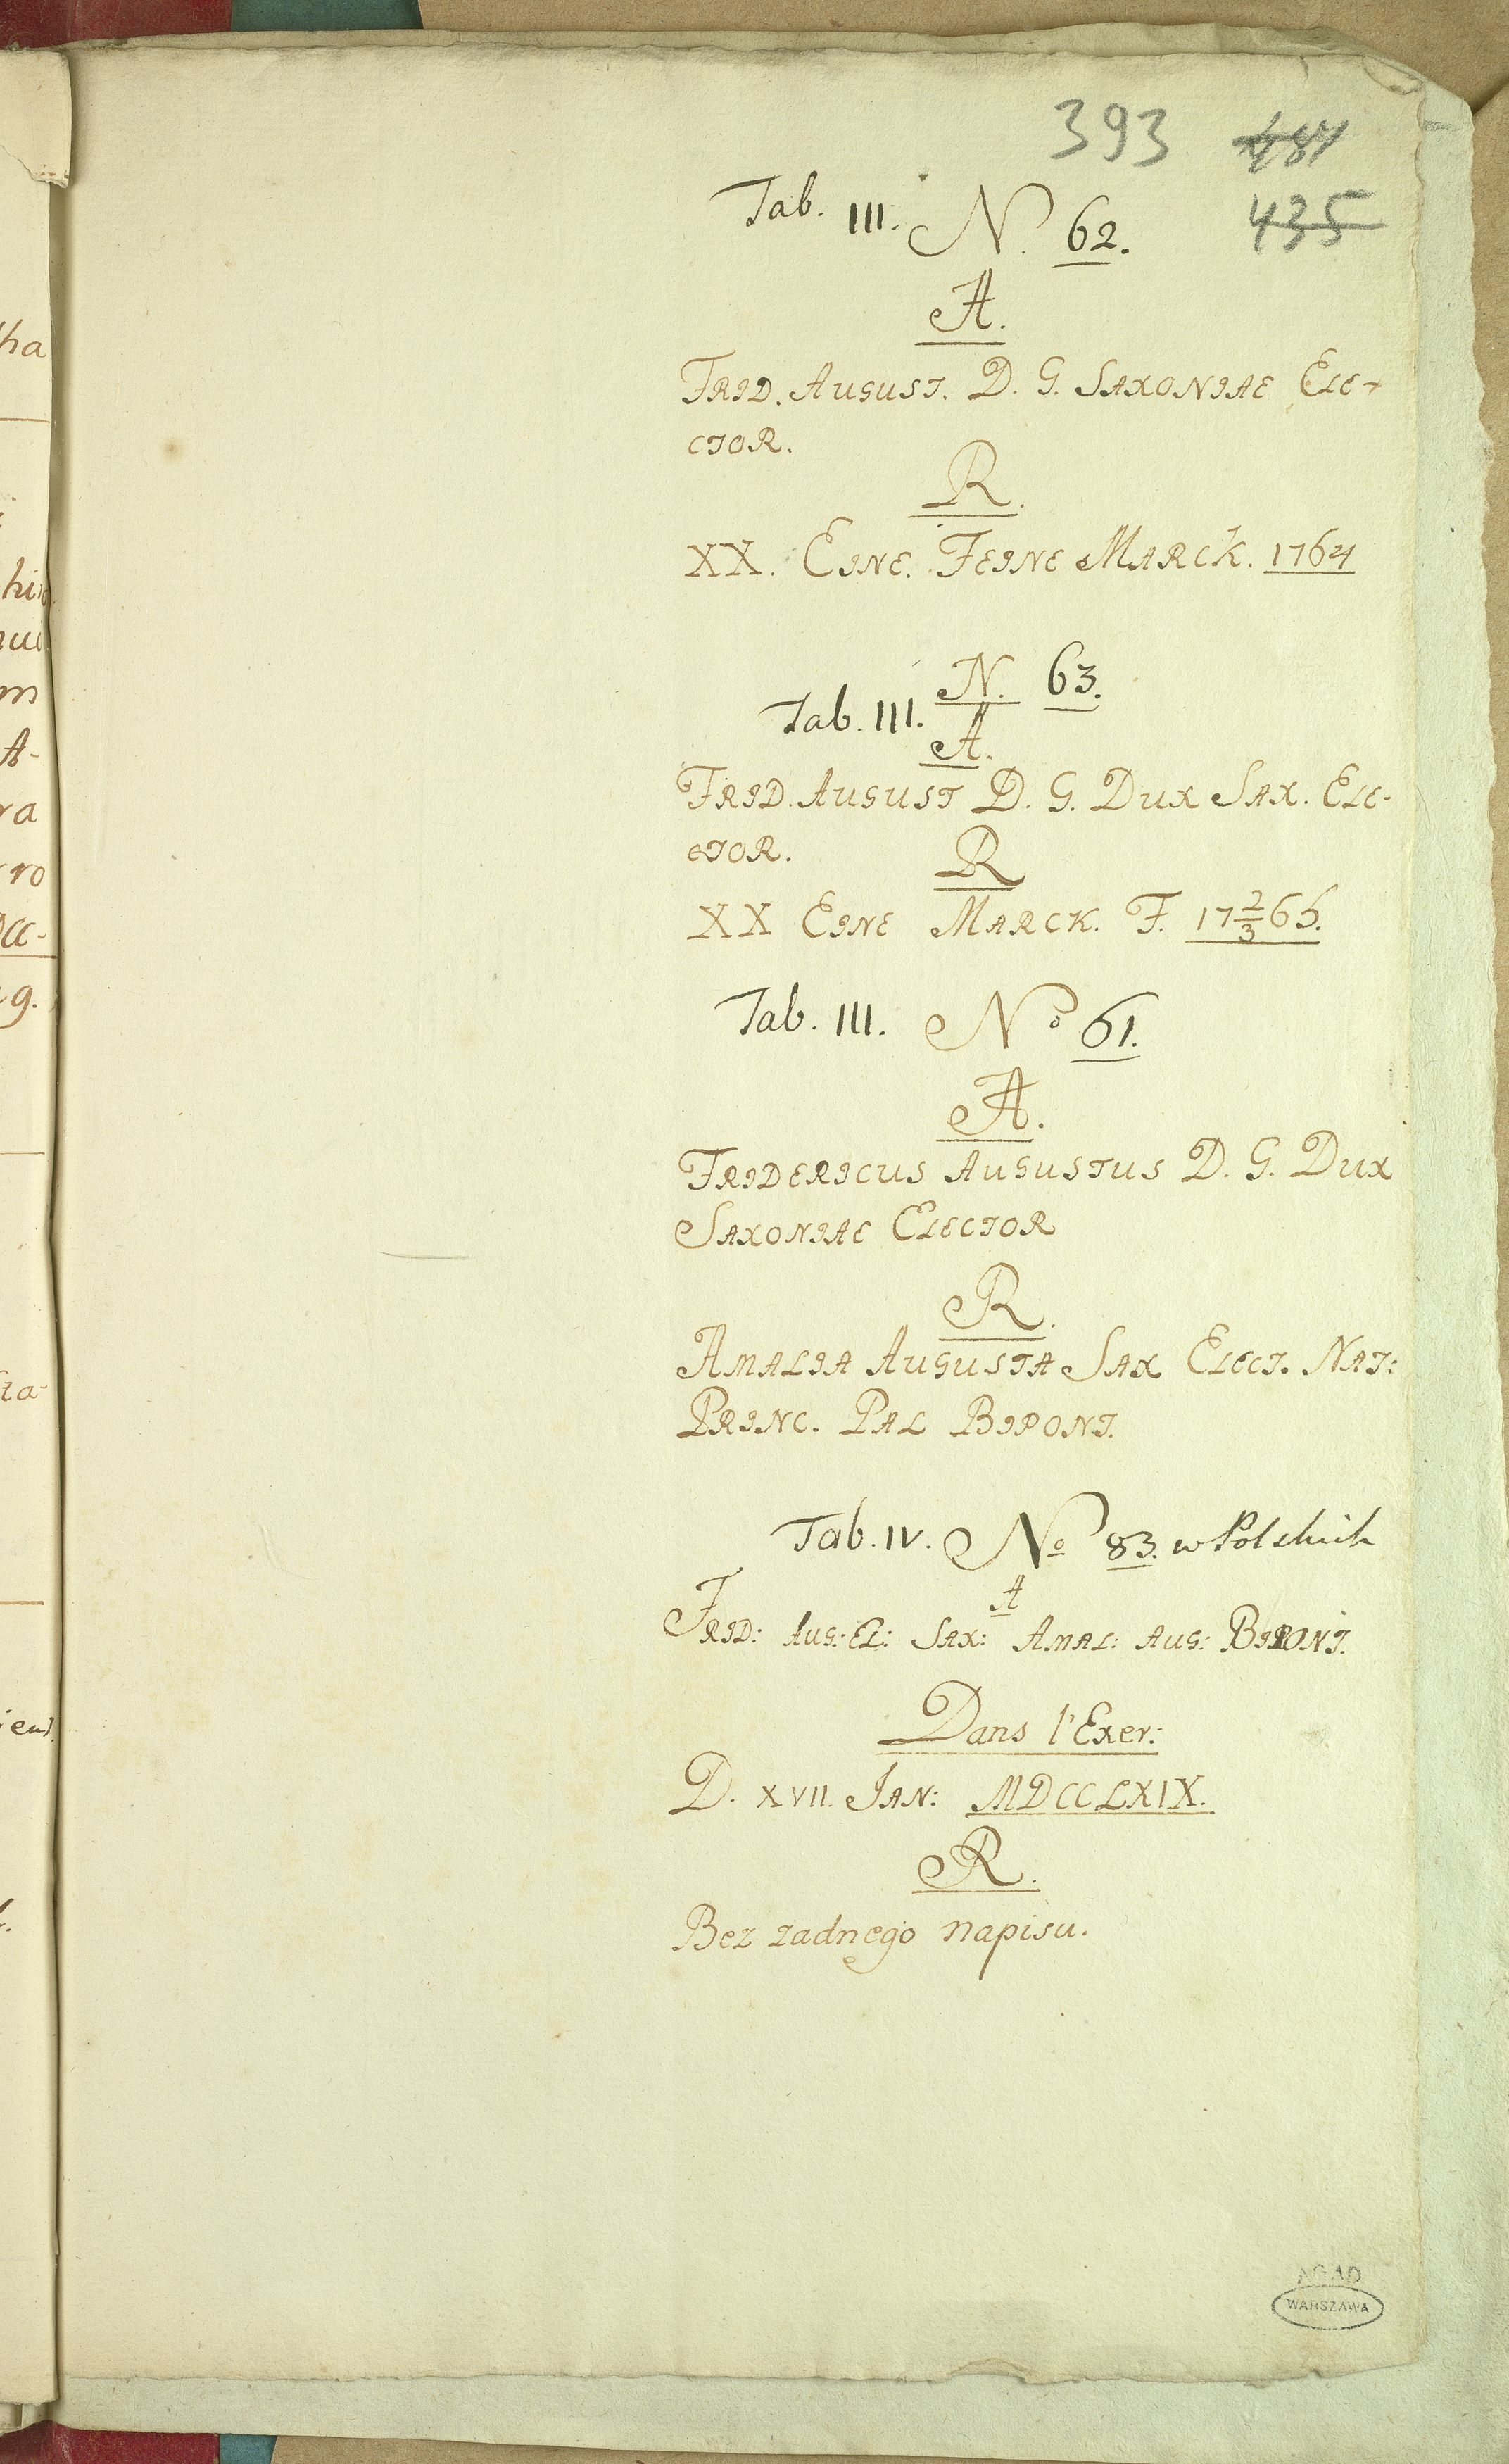 393 434
435
Tab. III. N. 62.
A.
FRID. AUGUST. D. G. SAXONIAE ELE-
CTOR.
R.
XX. EINE. FEINE MARCK. 1764
N. 63.
Tab. III.
A.
FRID. AUGUST D. G. DUX SAX. ELE-
CTOR.
R
XX EINE MARCK. F. 17 2/3 65.
Tab. III. No 61.
A.
FRIDERICUS AUGUSTUS D. G. DUX
SAXONIAE ELECTOR
R.
AMALIA AUGUSTA SAX ELECT. NAT:
PRINC. PAL BIPONT.
Tab. IV. No 83. w Polskich
A
FRID: AUG: EL: SAX: AMAL: AUG: BIPONT.
Dans l'Exer:
D. XVII. JAN: MDCCLXIX.
R.
Bez zadnego napisu.
AGAD
WARSZAWA
ha
hic
m
A-
ra
ro
g.